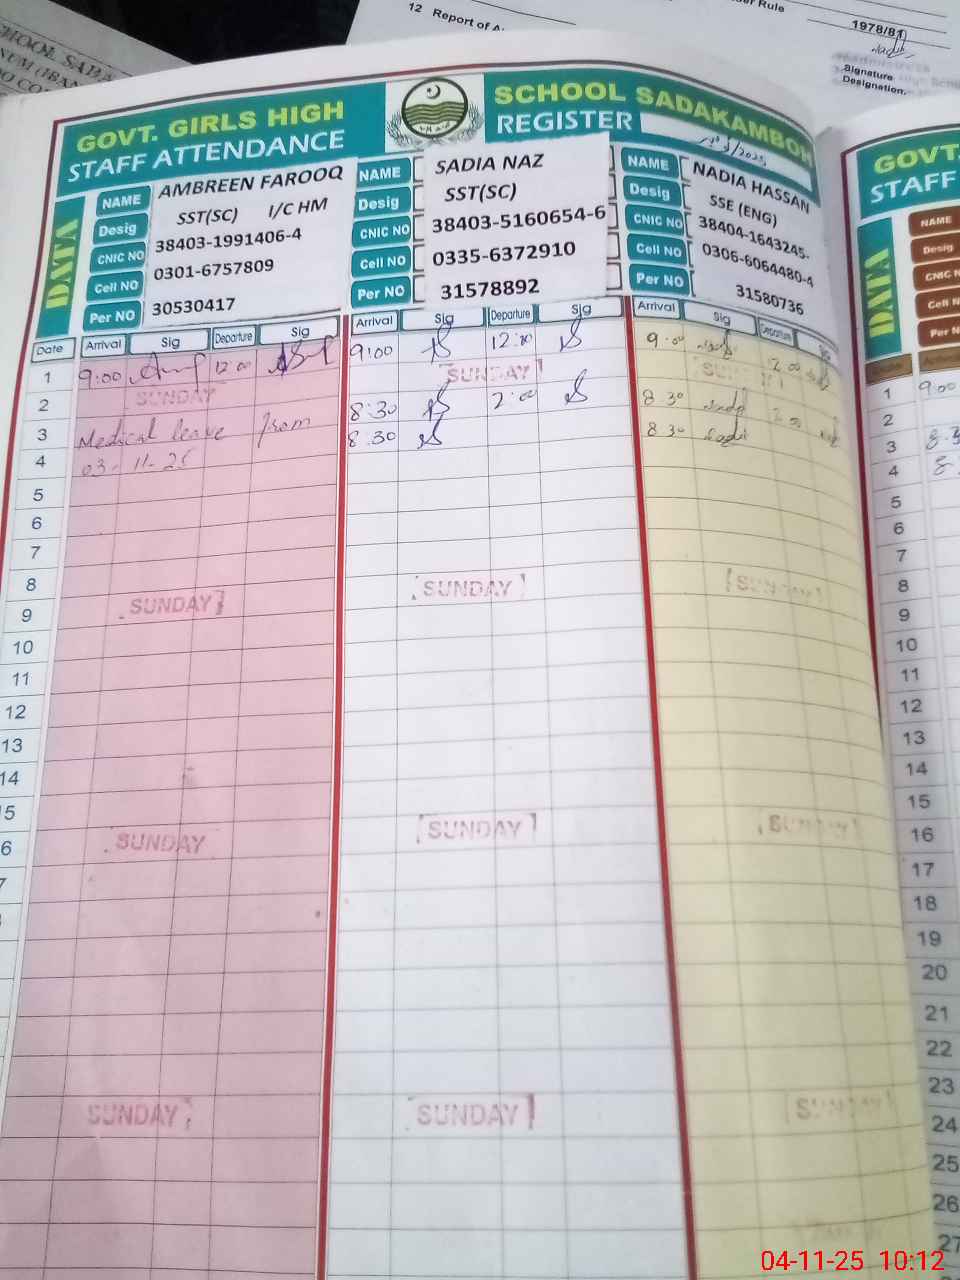 12 Report of
der Rule
1978/81
Signature
Designation.
GOVT. GIRLS HIGH SCHOOL SADAKAMBOH
STAFF ATTENDANCE REGISTER
/2025
DATA
NAME AMBREEN FAROOQ
Desig SST(SC) I/C HM
CNIC NO 38403-1991406-4
Cell NO 0301-6757809
Per NO 30530417
NAME SADIA NAZ
Desig SST(SC)
CNIC NO 38403-5160654-6
Cell NO 0335-6372910
Per NO 31578892
NAME NADIA HASSAN
Desig SSE (ENG)
CNIC NO 38404-1643245-
Cell NO 0306-6064480-4
Per NO 31580736
Date Arrival Sig Departure Sig Arrival Sig Departure Sig Arrival Sig Departure Sig
1 9:00 12:00 9:00 12:00 9:00 2:00
2 SUNDAY SUNDAY SUNDAY
3 Medical leave from 8:30 2:00 8 30
4 03-11-25 8:30 8 30
5
6
7
8
9 SUNDAY SUNDAY SUNDAY
10
11
12
13
14
5
6 SUNDAY SUNDAY SUNDAY
7
SUNDAY SUNDAY SUNDAY
GOVT.
STAFF
DATA
NAME
Desig
CNIC N
Cell N
Per N
1 9:00
2
3 8:3
4 8:
5
6
7
8
9
10
11
12
13
14
15
16
17
18
19
20
21
22
23
24
25
26
27
04-11-25 10:12